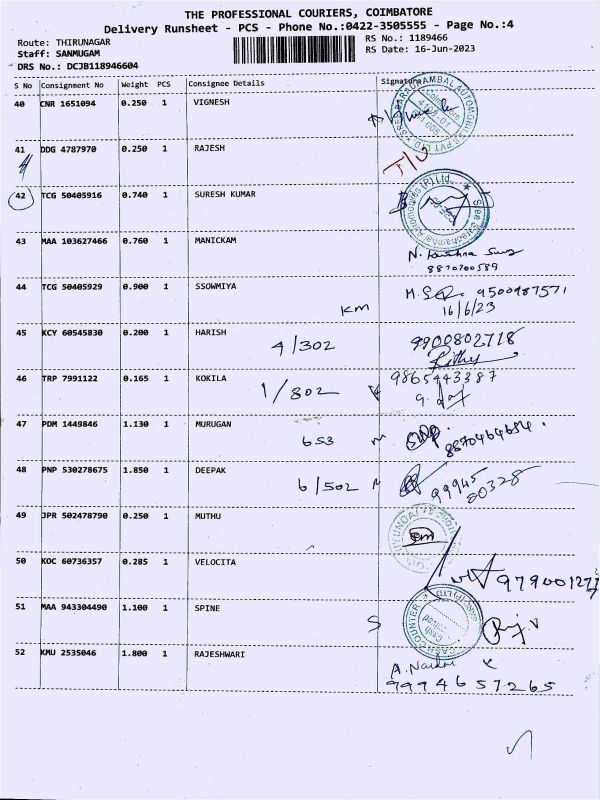 THE PROFESSIONAL COURIERS, COIMBATORE
Delivery Runsheet - PCS - Phone No.:0422-3505555 - Page No.:4
Route: THIRUNAGAR
RS No.: 1189466
Staff: SANMUGAM
RS Date: 16-Jun-2023
DRS No.: DCJB118946604
S No Consignment No Weight PCS Consignee Details Signature
40 CNR 1651094 0.250 1 VIGNESH
41 DDG 4787970 0.250 1 RAJESH
42 TCG 50405916 0.740 1 SURESH KUMAR
43 MAA 103627466 0.760 1 MANICKAM
8870700589
44 TCG 50405929 0.900 1 SSOWMIYA 9500987571
KM 16/6/23
45 KCY 60545830 0.200 1 HARISH 9900802718
4/302
46 TRP 7991122 0.165 1 KOKILA 9865443387
1/802
47 PDM 1449846 1.130 1 MURUGAN
653
48 PNP 530278675 1.850 1 DEEPAK
6/502 99945 80328
49 JPR 502478790 0.250 1 MUTHU
50 KOC 60736357 0.285 1 VELOCITA
51 MAA 943304490 1.100 1 SPINE
S
52 KMU 2535046 1.800 1 RAJESHWARI
9994657265